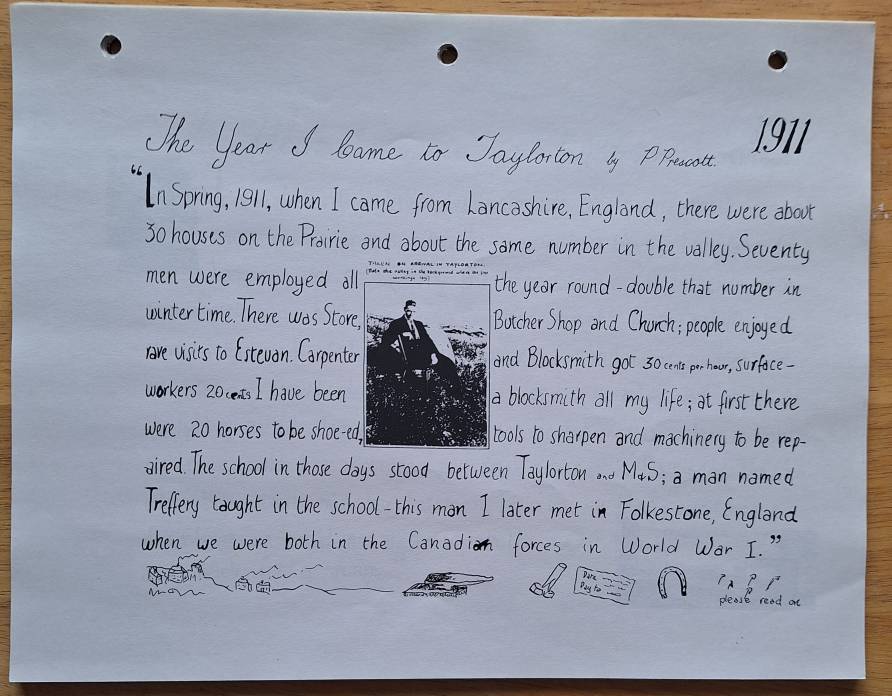 The Year I Came to Taylorton by P Prescott. 1911
"In Spring, 1911, when I came from Lancashire, England, there were about
30 houses on the Prairie and about the same number in the valley. Seventy
men were employed all the year round - double that number in
winter time. There was Store, Butcher Shop and Church; people enjoyed
rare visits to Estevan. Carpenter and Blocksmith got 30 cents per hour, surface-
workers 20 cents I have been a blocksmith all my life; at first there
were 20 horses to be shoe-ed, tools to sharpen and machinery to be rep-
aired. The school in those days stood between Taylorton and M&S; a man named
Treffery taught in the school - this man I later met in Folkestone, England
when we were both in the Canadian forces in World War I."
TAKEN ON ARRIVAL IN TAYLORTON.
(Note the valley in the background where the
Date
Pay to
please read on